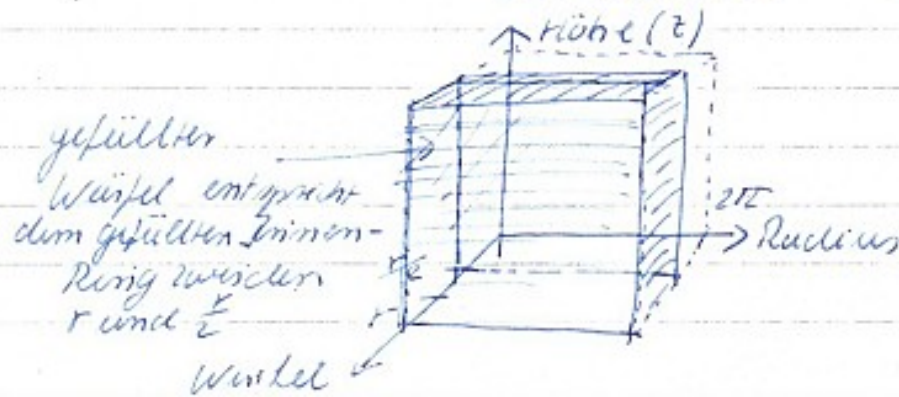 Höhe (z)
gefüllter
Würfel entspricht
dem gefüllten Innen-
Ring zwischen
r und r/2
2π
Radius
r/2
r
Winkel